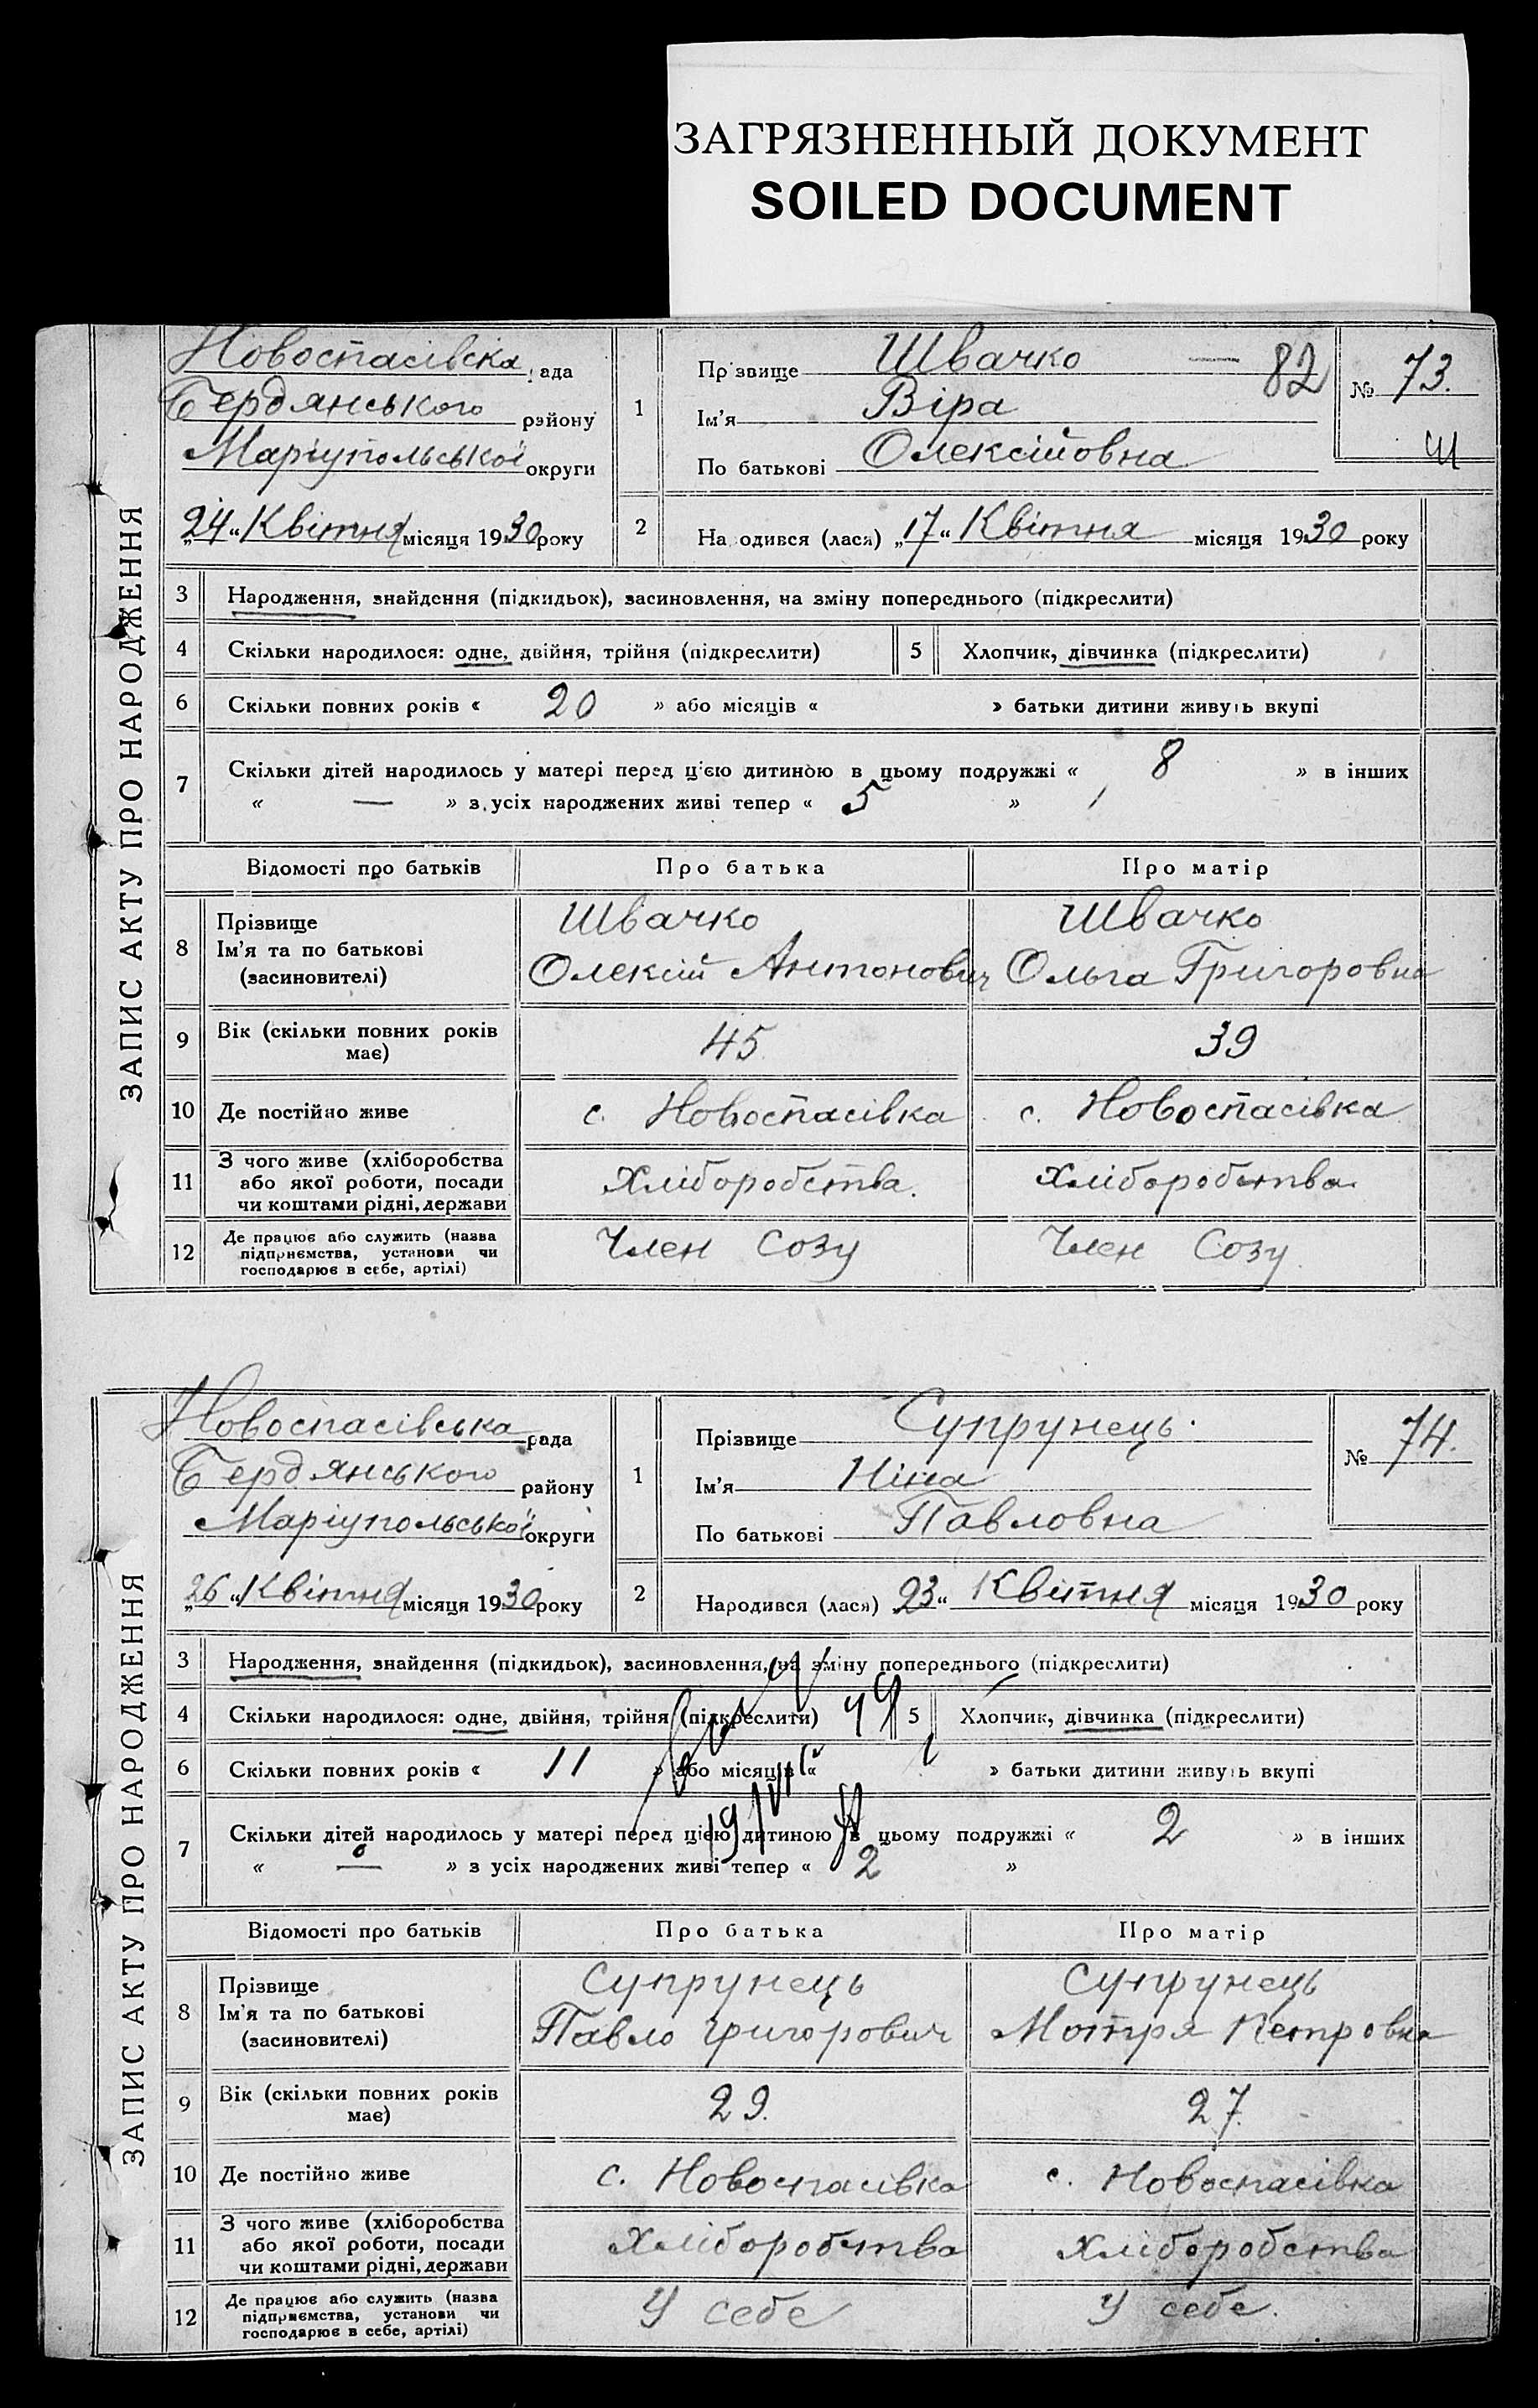 ЗАГРЯЗНЕННЫЙ ДОКУМЕНТ
SOILED DOCUMENT
ЗАПИС АКТУ ПРО НАРОДЖЕННЯ
Новоспасівска рада
Бердянського району
Маріупольської округи
„24“ Квітня місяця 1930 року
1
Прізвище Швачко 82
Ім'я Віра
По батькові Олексійовна
№ 73.
2 Народився (лася) „17“ Квітня місяця 1930 року
3 Народження, знайдення (підкидьок), засиновлення, на зміну попереднього (підкреслити)
4 Скільки народилося: одне, двійня, трійня (підкреслити) 5 Хлопчик, дівчинка (підкреслити)
6 Скільки повних років « 20 » або місяців « » батьки дитини живуть вкупі
7 Скільки дітей народилось у матері перед цією дитиною в цьому подружжі « 8 » в інших
« — » з усіх народжених живі тепер « 5 »
Відомості про батьків Про батька Про матір
8 Прізвище Швачко Швачко
Ім'я та по батькові
(засиновителі) Олексій Антонович Ольга Григоровна
9 Вік (скільки повних років має) 45 39
10 Де постійно живе с. Новоспасівка с. Новоспасівка
11 З чого живе (хліборобства
або якої роботи, посади
чи коштами рідні, держави Хліборобства. Хліборобства
12 Де працює або служить (назва
підприємства, установи чи
господарює в себе, артілі) Член Созу Член Созу.
ЗАПИС АКТУ ПРО НАРОДЖЕННЯ
Новоспасівська рада
Бердянського району
Маріупольської округи
„26“ Квітня місяця 1930 року
1
Прізвище Супрунець
Ім'я Ніна
По батькові Павловна
№ 74.
2 Народився (лася) „23“ Квітня місяця 1930 року
3 Народження, знайдення (підкидьок), засиновлення, на зміну попереднього (підкреслити)
4 Скільки народилося: одне, двійня, трійня (підкреслити) 5 Хлопчик, дівчинка (підкреслити)
6 Скільки повних років « 11 » або місяців « » батьки дитини живуть вкупі
7 Скільки дітей народилось у матері перед цією дитиною в цьому подружжі « 2 » в інших
« — » з усіх народжених живі тепер « 2 »
Відомості про батьків Про батька Про матір
8 Прізвище Супрунець Супрунець
Ім'я та по батькові
(засиновителі) Павло Григорович Мотря Петровна
9 Вік (скільки повних років має) 29. 27.
10 Де постійно живе с. Новоспасівка с. Новоспасівка
11 З чого живе (хліборобства
або якої роботи, посади
чи коштами рідні, держави Хліборобства Хліборобства
12 Де працює або служить (назва
підприємства, установи чи
господарює в себе, артілі) У себе У себе.